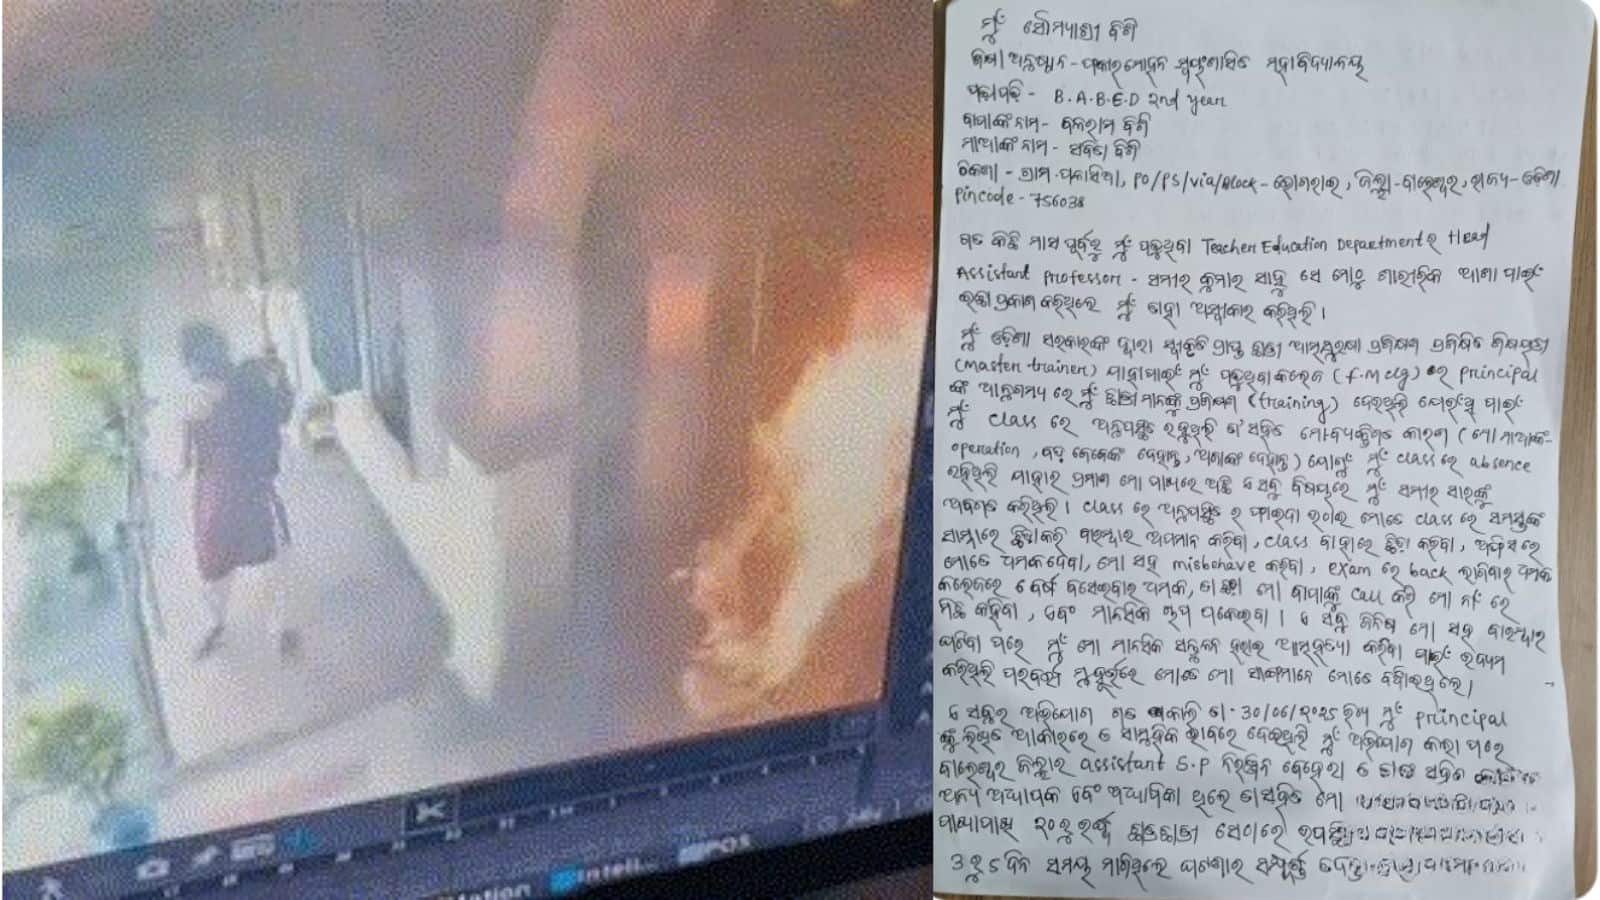 ମୁଁ ସୌମ୍ୟାଶ୍ରୀ ବିଶି
ଶିକ୍ଷା ଅନୁଷ୍ଠାନ - ଫକୀର ମୋହନ ସ୍ୱୟଂଶାସିତ ମହାବିଦ୍ୟାଳୟ
B.A.B.E.D 2nd year
ବାପାଙ୍କ ନାମ - ବଳରାମ ବିଶି
ମାଆଙ୍କ ନାମ - ବିଶି
ଠିକଣା - ଗ୍ରାମ - ପଳାସିଆ, PO/PS/Via/Block - ଭୋଗରାଇ, ଜିଲ୍ଲା - ବାଲେଶ୍ୱର, ରାଜ୍ୟ - ଓଡ଼ିଶା
Pincode - 756038
ଗତ କିଛି ମାସ ପୂର୍ବରୁ ମୁଁ ପଢୁଥିବା Teacher Education Department ର Head
Assistant Professor - ସମୀର କୁମାର ସାହୁ ସେ ମୋଠୁ ଶାରୀରିକ ଆଶା ପାଇଁ
ଇଚ୍ଛା ପ୍ରକାଶ କରିଥିଲେ ମୁଁ ତାହା ଅସ୍ୱୀକାର କରିଥିଲି ।
ମୁଁ ଓଡ଼ିଶା ସରକାରଙ୍କ ଦ୍ୱାରା ସ୍ୱୀକୃତି ପ୍ରାପ୍ତ ଛାତ୍ରୀ ଆତ୍ମସୁରକ୍ଷା ପ୍ରଶିକ୍ଷଣ
(Master trainer) ଯାହାପାଇଁ ମୁଁ ପଢୁଥିବା କଲେଜ (F.M clg) ର principal
ଙ୍କ ଆନୁଗମ୍ୟ ରେ ମୁଁ ଛାତ୍ରୀ ମାନଙ୍କୁ ପ୍ରଶିକ୍ଷଣ (training) ଦେଉଥିଲି ଯେଉଁଥି ପାଇଁ
ମୁଁ class ରେ ଅନୁପସ୍ଥିତ ରହୁଥିଲି ତା' ସହିତ ମୋ ବ୍ୟକ୍ତିଗତ କାରଣ (ମୋ ମାଆଙ୍କ
operation, ବଡ଼ ଜେଜେଙ୍କ ଦେହାନ୍ତ, ଅଜାଙ୍କ ଦେହାନ୍ତ) ଯୋଗୁଁ ମୁଁ class ରେ absence
ରହିଥିଲି ଯାହାର ପ୍ରମାଣ ମୋ ପାଖରେ ଅଛି ଏ ସବୁ ବିଷୟରେ ମୁଁ ସମୀର ସାରଙ୍କୁ
ଅବଗତ କରିଥିଲି । class ରେ ଅନୁପସ୍ଥିତ ମୋତେ class ରେ ସମସ୍ତଙ୍କ
ସାମ୍ନାରେ ଛିଡ଼ା କରି ବାରମ୍ବାର ଅପମାନ କରିବା, class ବାହାରେ ଛିଡ଼ା କରିବା, ଅଫିସରେ
ମୋତେ ଧମକ ଦେବା, ମୋ ସହ misbehave କରିବା, exam ରେ back ଲାଗିବାର ଧମକ
କଲେଜରେ ବର୍ଷ ବସେଇବାର ଧମକ, ତା ଛଡ଼ା ମୋ ବାପାଙ୍କୁ call କରି ମୋ ନାଁ ରେ
ମିଛ କହିବା, ଏବଂ ମାନସିକ ଚାପ ପକେଇବା । ଏ ସବୁ ଜିନିଷ ମୋ ସହ ବାରମ୍ବାର
ଘଟିବା ପରେ ମୁଁ ମୋ ମାନସିକ ସନ୍ତୁଳନ ହରାଇ ଆତ୍ମହତ୍ୟା କରିବା ପାଇଁ ଉଦ୍ୟମ
କରିଥିଲି ପରବର୍ତ୍ତୀ ମୁହୂର୍ତ୍ତରେ ମୋତେ ମୋ ସାଙ୍ଗମାନେ ମୋତେ ବଞ୍ଚାଇଥିଲେ ।
ଏ ସବୁର ଅଭିଯୋଗ ଗତ କାଲି ତା. 30/06/2025 ରିଖ ମୁଁ principal
ଙ୍କୁ ଲିଖିତ ଆକାରରେ ଓ ସାମୁହିକ ଭାବରେ ଦେଇଥିଲି ମୁଁ ଅଭିଯୋଗ କଲା ପରେ
ବାଲେଶ୍ୱର ଜିଲ୍ଲାର assistant S.P ନିରଞ୍ଜନ ବେହେରା ଓ ତାଙ୍କ ସହିତ
ଅନ୍ୟ ଅଧ୍ୟାପକ ଏବଂ ଅଧ୍ୟାପିକା ଥିଲେ ତା ସହିତ ମୋ
ପାଖାପାଖି ୨୦ରୁ ଉର୍ଦ୍ଧ୍ୱ ଛାତ୍ରଛାତ୍ରୀ ସେଠାରେ ଉପସ୍ଥିତ
3 ରୁ 5 ଦିନ ସମୟ ମାଗିଥିଲେ ଘଟଣାର ସମ୍ପୂର୍ଣ୍ଣ